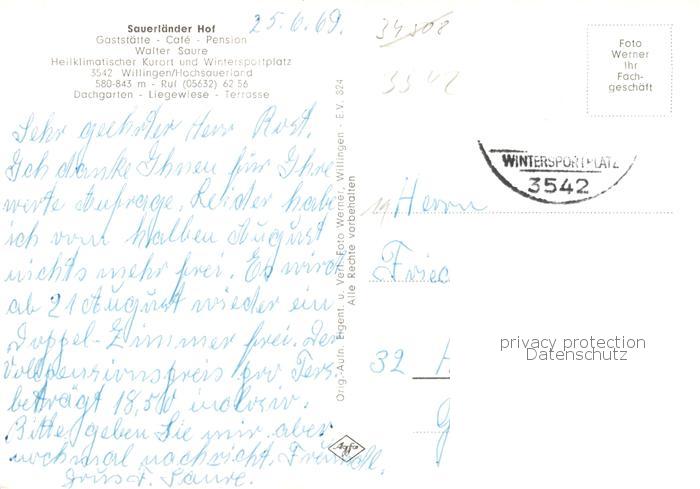 Sauerländer Hof
Gaststätte - Café - Pension
Walter Saure
Heilklimatischer Kurort und Wintersportplatz
3542 Willingen/Hochsauerland
580-843 m - Ruf (05632) 62 56
Dachgarten - Liegewiese - Terrasse
25.6.69.
Sehr geehrter Herr Rost.
Ich danke Ihnen für Ihre
werte Anfrage. Leider habe
ich vom halben August
nichts mehr frei. Es wird
ab 21 August wieder ein
Doppel-Zimmer frei. Der
Vollpensionspreis pro Pers.
beträgt 18,50 inclusiv.
Bitte geben Sie mir aber
nochmal nachricht. Freundl.
Gruss F. Saure.
Orig.-Aufn. Eigent. u. Verl. Foto Werner, Willingen - E.V. 824
Alle Rechte vorbehalten
Agfa
3542
Foto
Werner
Ihr
Fach-
geschäft
WINTERSPORTPLATZ
3542
Herrn
Fried
32
privacy protection
Datenschutz